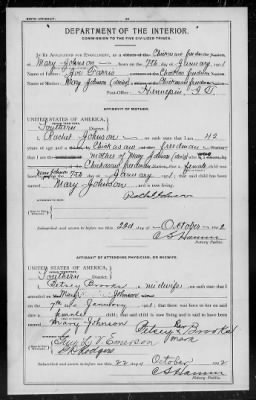 BIRTH AFFIDAVIT.
DEPARTMENT OF THE INTERIOR.
COMMISSION TO THE FIVE CIVILIZED TRIBES.
IN RE APPLICATION FOR ENROLLMENT, as a citizen of the Chickasaw freedmen Nation, of
Mary Johnson, born on the 7th day of January, 1901
Name of Father: Joe Farris a citizen of the Choctaw freedmen Nation.
Name of Mother: Mary Johnson a citizen of the Chickasaw freedmen Nation.
Post-Office: Hennepin I.T.
AFFIDAVIT OF MOTHER.
UNITED STATES OF AMERICA,
Southern District.
I, Rachel Johnson, on oath state that I am 42
years of age and a citizen by Chickasaw freedman
mother of Mary Johnson
Chickasaw freedman female
7th day of January, 1901, that said child has been
named Mary Johnson, and is now living.
Rachel Johnson
Subscribed and sworn to before me this 22d day of October, 1902
C S Hamm
Notary Public.
AFFIDAVIT OF ATTENDING PHYSICIAN, OR MIDWIFE.
UNITED STATES OF AMERICA,
Southern District.
I, Betsey Brooks, a midwife, on oath state that I
attended on Mary Johnson
7th day of January, 1901; that there was born to her on said
female child; that said child is now living and is said to have been
named Mary Johnson
Betsey Brooks
her
mark
Guy L. V. Emerson
Hodges
Subscribed and sworn to before me this 22 day of October, 1902
C S Hamm
Notary Public.